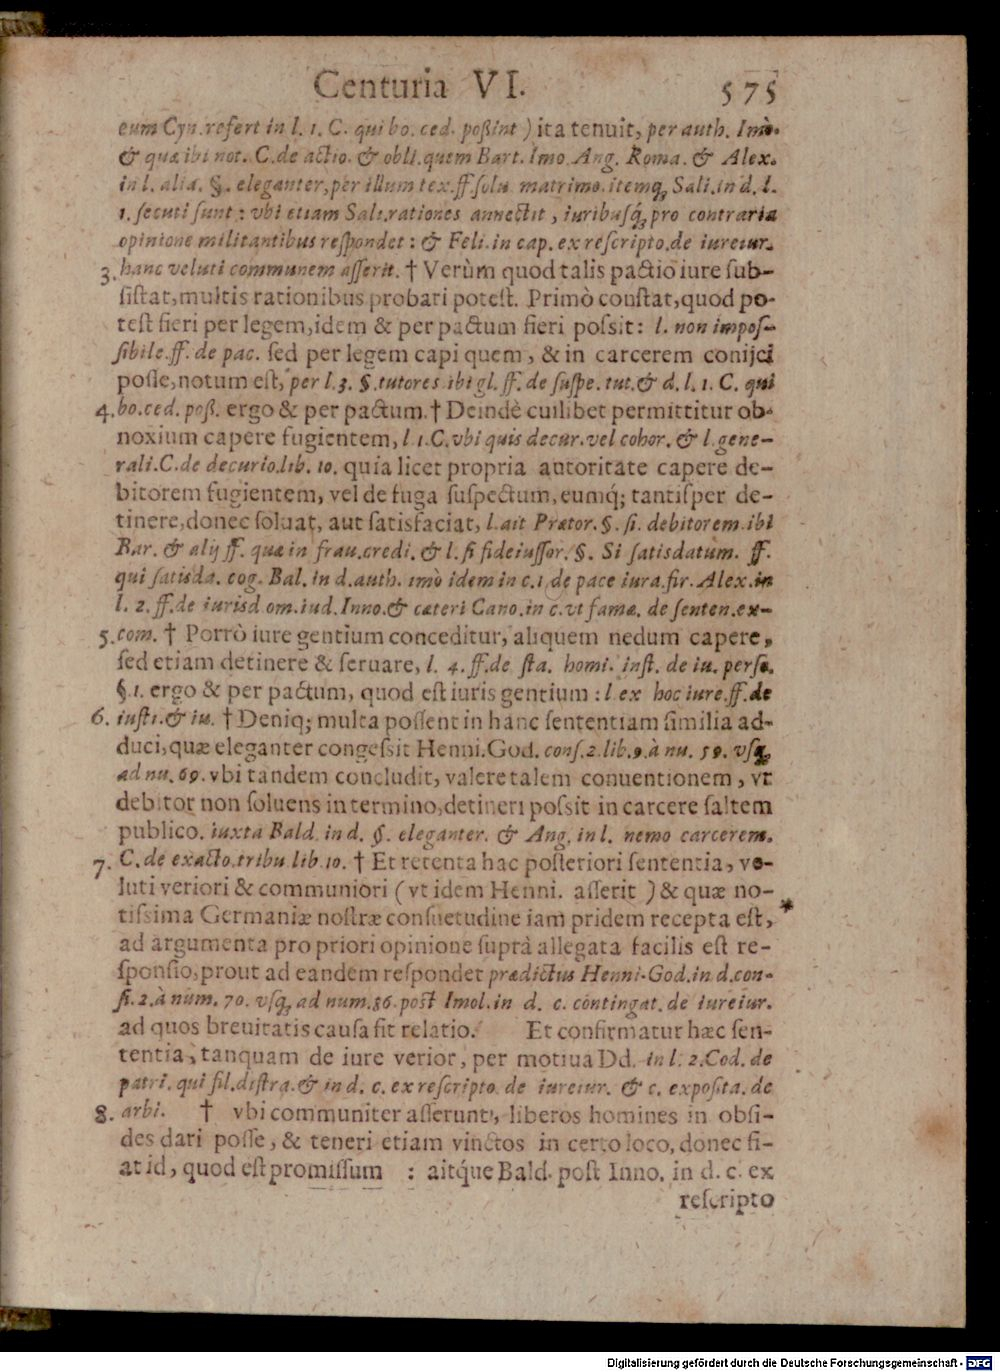 Centuria VI. 575
eum Cyn.refert in l. 1. C. qui bo. ced. poßint ) ita tenuit, per auth. Imò.
& quæ ibi not. C.de actio. & obli.quem Bart. Imo. Ang. Roma. & Alex.
in l. alia. §. eleganter,per illum tex.ff.solu. matrimo.itemq́; Sali.in d. l.
1. secuti sunt: vbi etiam Sali.rationes annectit, iuribusq́; pro contraria
opinione militantibus respondet: & Feli.in cap. ex rescripto.de iureiur.
3. hanc veluti communem asserit. † Verùm quod talis pactio iure sub-
sistat,multis rationibus probari potest. Primò constat,quod po-
test fieri per legem,idem & per pactum fieri possit: l. non impos-
sibile.ff. de pac. sed per legem capi quem, & in carcerem conijci
posse,notum est, per l.3. §.tutores.ibi gl. ff. de suspe. tut.& d. l. 1. C. qui
4. bo.ced. poß. ergo & per pactum.† Deindè cuilibet permittitur ob-
noxium capere fugientem, l 1.C.vbi quis decur.vel cohor. & l.gene-
rali.C.de decurio.lib. 10. quia licet propria autoritate capere de-
bitorem fugientem, vel de fuga suspectum,eumq́; tantisper de-
tinere,donec soluat, aut satisfaciat, l.ait Prætor. §. si. debitorem.ibi
Bar. & alij ff. quæ in frau.credi. & l. si fideiussor. §. Si satisdatum. ff.
qui satisda. cog. Bal. in d.auth. imò idem in c.1 de pace iura.fir. Alex.in
l. 2. ff.de iurisd om.iud.Inno.& cæteri Cano.in c.vt famæ. de senten.ex-
5. com. † Porrò iure gentium conceditur, aliquem nedum capere,
sed etiam detinere & seruare, l. 4. ff.de sta. homi. inst. de iu. perso.
§.1. ergo & per pactum, quod est iuris gentium : l ex hoc iure.ff.de
6. iusti.& iu. † Deniq; multa possent in hanc sententiam similia ad-
duci,quæ eleganter congessit Henni.God. cons.2.lib.9.à nu. 59. vsq́;
ad nu.69. vbi tandem concludit, valere talem conuentionem, vt
debitor non soluens in termino,detineri possit in carcere saltem
publico. iuxta Bald. in d. §. eleganter. & Ang. in l. nemo carcerem.
7. C.de exacto.tribu.lib.10. † Et retenta hac posteriori sententia, ve-
luti veriori & communiori (vt idem Henni. asserit ) & quæ no-
tissima Germaniæ nostræ consuetudine iam pridem recepta est, *
ad argumenta pro priori opinione suprà allegata facilis est re-
sponsio,prout ad eandem respondet prædictus Henni-God.in d.con-
si.2.à num. 70. vsq́; ad num.86.post Imol.in d. c. contingat.de iureiur.
ad quos breuitatis causa fit relatio. Et confirmatur hæc sen-
tentia, tanquam de iure verior, per motiua Dd. in l. 2.Cod. de
patri. qui fil.distra.& in d. c. ex rescripto de iureiur. & c. exposita. de
8. arbi. † vbi communiter asserunt, liberos homines in obsi-
des dari posse, & teneri etiam vinctos in certo loco, donec fi-
at id, quod est promissum : aitq́ue Bald. post Inno. in d. c. ex
rescripto
Digitalisierung gefördert durch die Deutsche Forschungsgemeinschaft - DFG